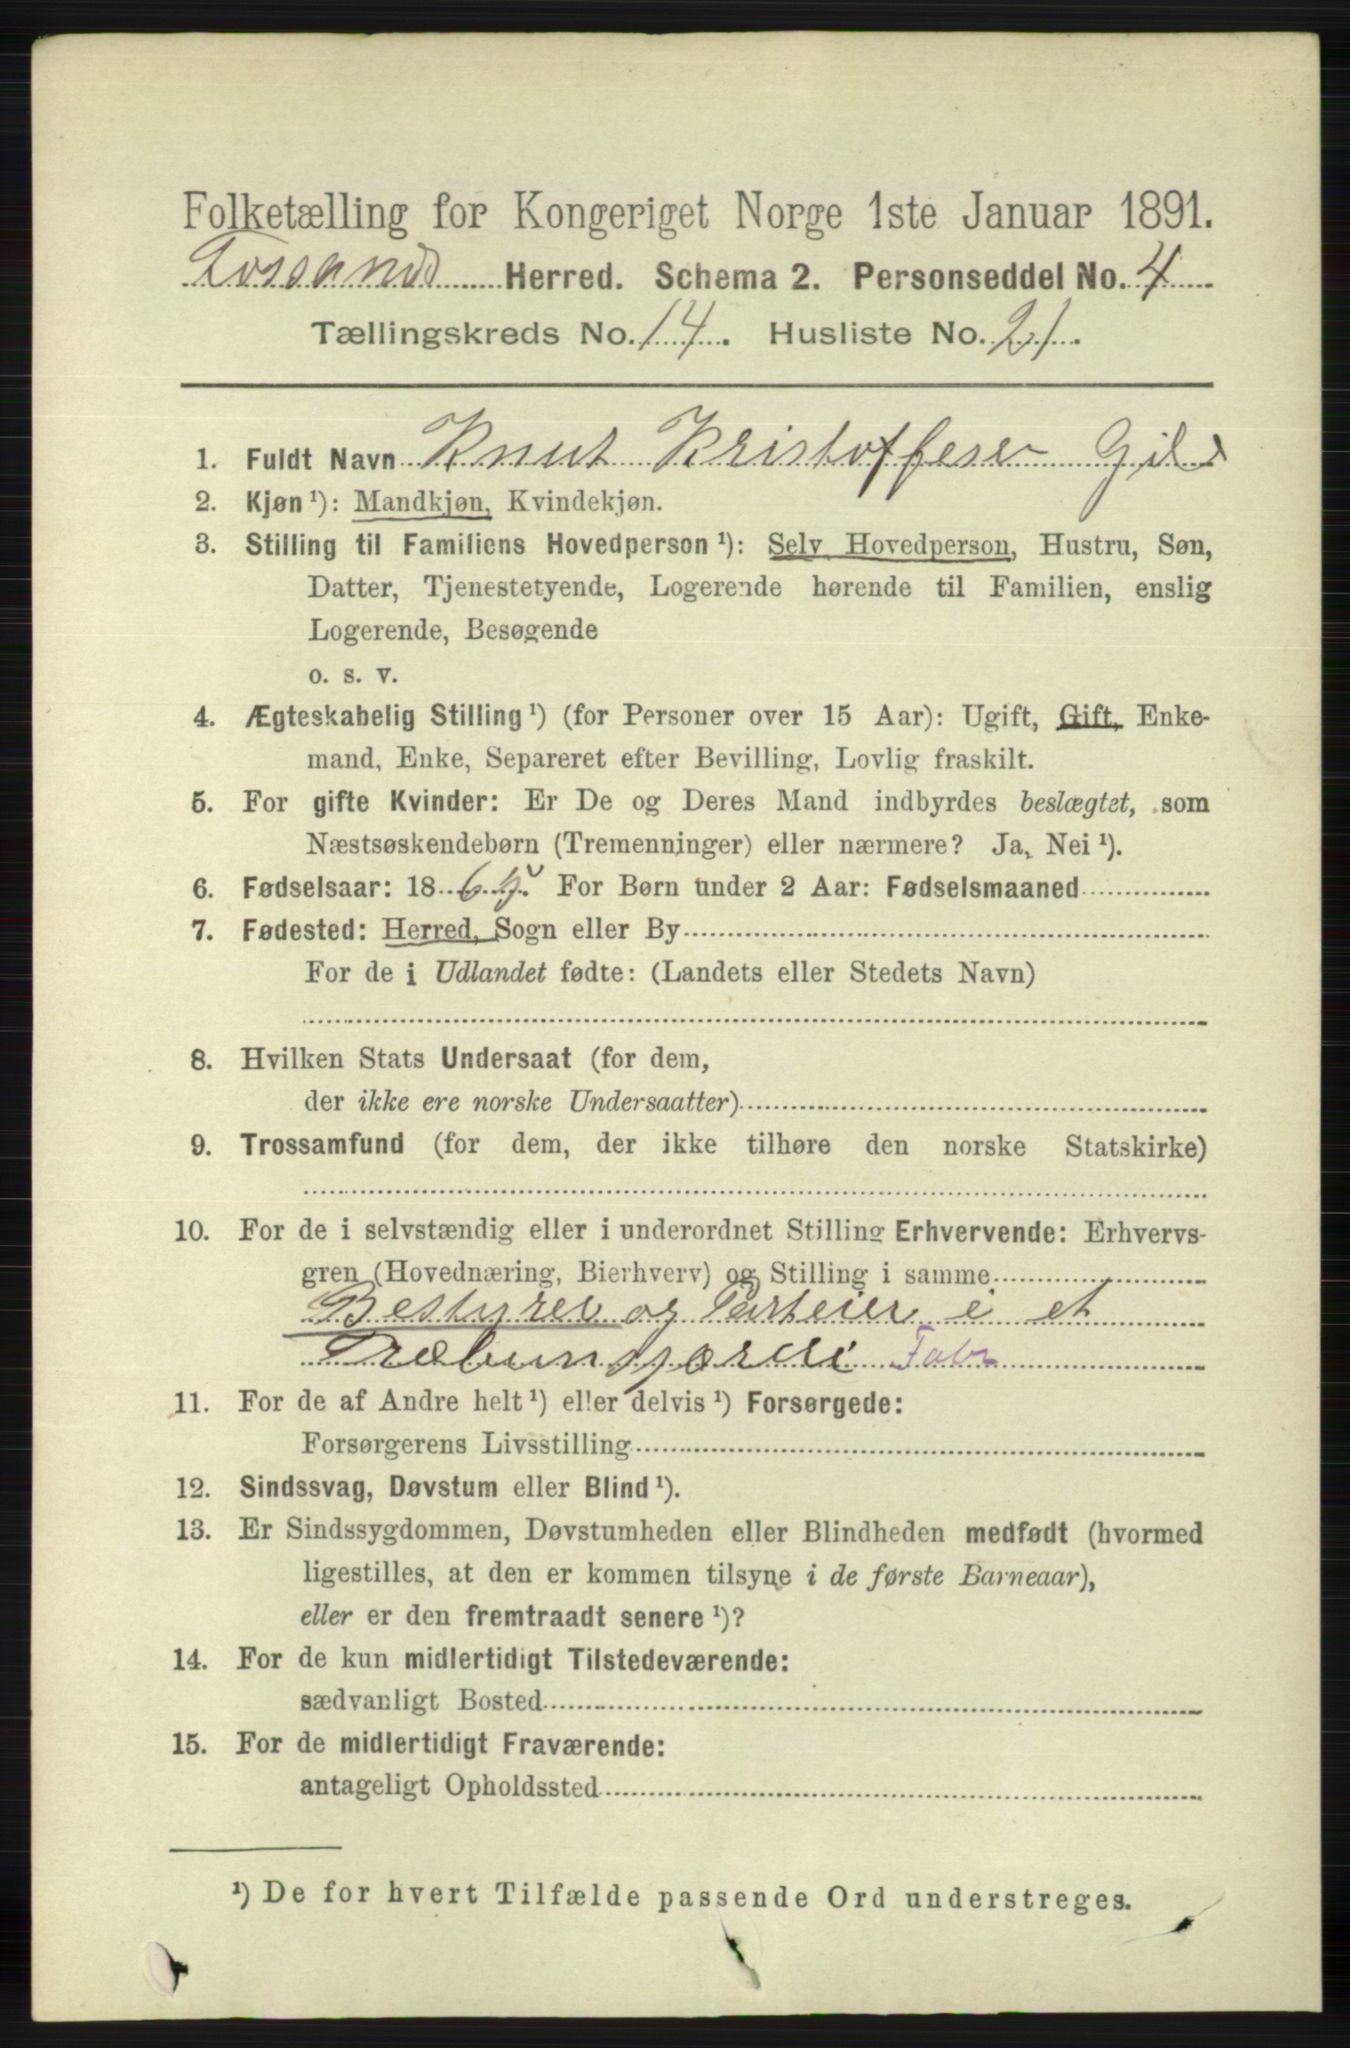 Folketælling for Kongeriget Norge 1ste Januar 1891.
Fossands Herred. Schema 2. Personseddel No. 4
Tællingskreds No. 14. Husliste No. 21.
1. Fuldt Navn Knut Kristoffesen
2. Kjøn ¹): Mandkjøn, Kvindekjøn.
3. Stilling til Familiens Hovedperson ¹): Selv Hovedperson, Hustru, Søn,
Datter, Tjenestetyende, Logerende hørende til Familien, enslig
Logerende, Besøgende
o. s. v.
4. Ægteskabelig Stilling ¹) (for Personer over 15 Aar): Ugift, Gift, Enke-
mand, Enke, Separeret efter Bevilling, Lovlig fraskilt.
5. For gifte Kvinder: Er De og Deres Mand indbyrdes beslægtet, som
Næstsøskendebørn (Tremenninger) eller nærmere? Ja, Nei ¹).
6. Fødselsaar: 18 For Børn under 2 Aar: Fødselsmaaned
7. Fødested: Herred, Sogn eller By
For de i Udlandet fødte: (Landets eller Stedets Navn)
8. Hvilken Stats Undersaat (for dem,
der ikke ere norske Undersaatter)
9. Trossamfund (for dem, der ikke tilhøre den norske Statskirke)
10. For de i selvstændig eller i underordnet Stilling Erhvervende: Erhvervs-
gren (Hovednæring, Bierhverv) og Stilling i samme
Bestyrer og Parteier i et
Fabr
11. For de af Andre helt ¹) eller delvis ¹) Forsørgede:
Forsørgerens Livsstilling
12. Sindssvag, Døvstum eller Blind ¹).
13. Er Sindssygdommen, Døvstumheden eller Blindheden medfødt (hvormed
ligestilles, at den er kommen tilsyne i de første Barneaar),
eller er den fremtraadt senere ¹)?
14. For de kun midlertidigt Tilstedeværende:
sædvanligt Bosted
15. For de midlertidigt Fraværende:
antageligt Opholdssted
¹) De for hvert Tilfælde passende Ord understreges.